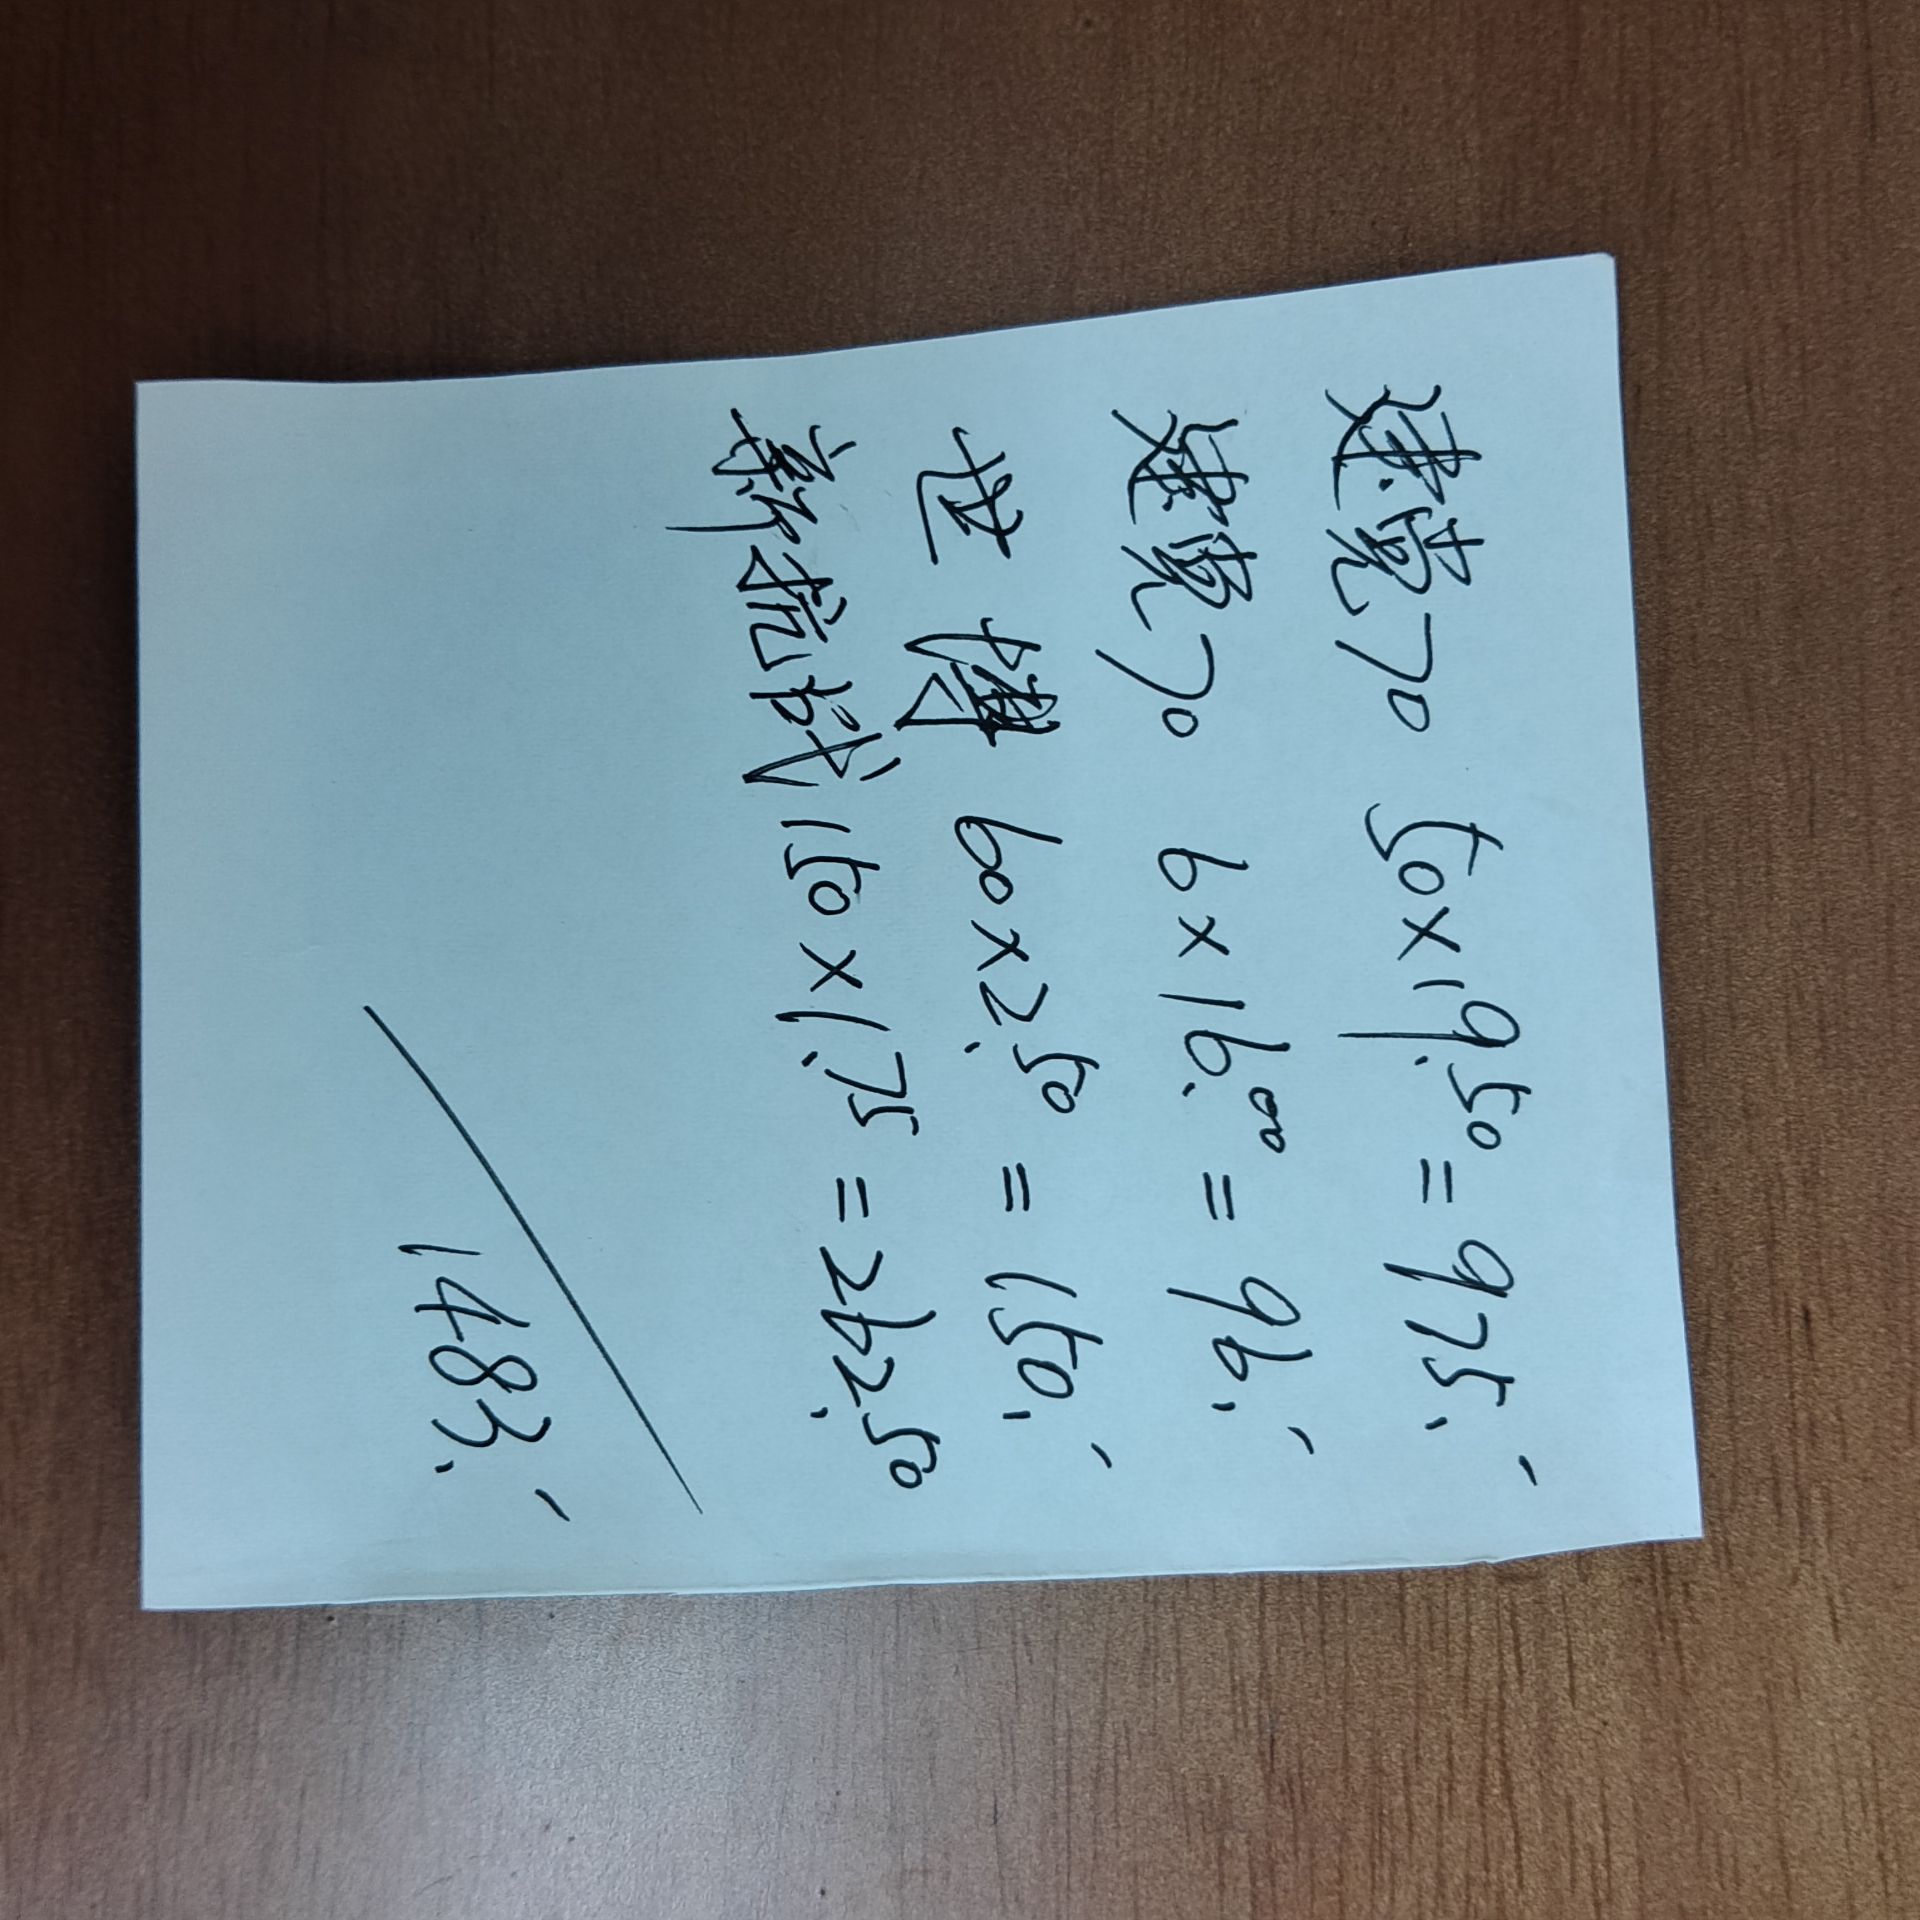 速竞70 50×19.50=975.-
速竞70 6×16.00=96.-
世博 60×2.50=150.-
新挑战 150×1.75=262.50
1483.-